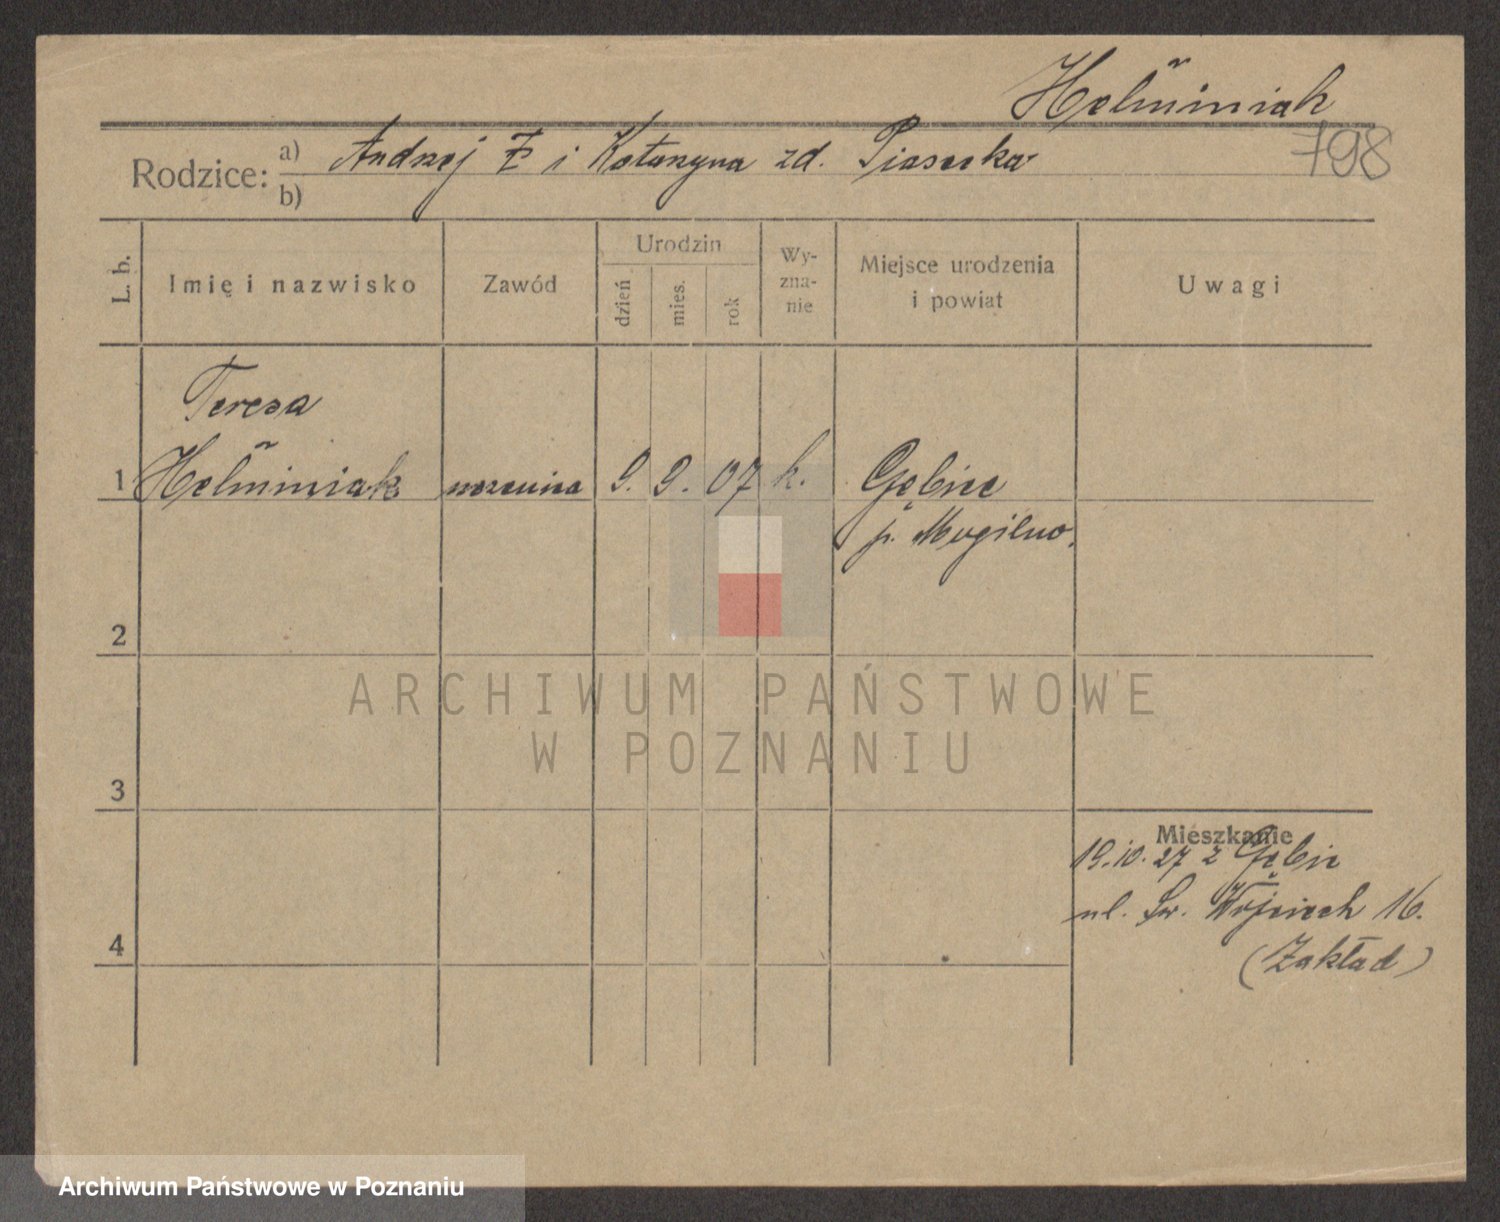 Helminiak
798
Rodzice: a) Andrzej i Katarzyna zd. Piasecka
b)
L. b.
Imię i nazwisko
Zawód
Urodzin
dzień
mies.
rok
Wy-
zna-
nie
Miejsce urodzenia
i powiat
Uwagi
Teresa
1 Helminiak uczenica 9. 9. 07 k. Gębice
p. Mogilno.
2
3
4
Mieszkanie
19.10.27 z Gębic
ul. Św. Wojciech 16.
(Zakład)
ARCHIWUM PAŃSTWOWE
W POZNANIU
Archiwum Państwowe w Poznaniu